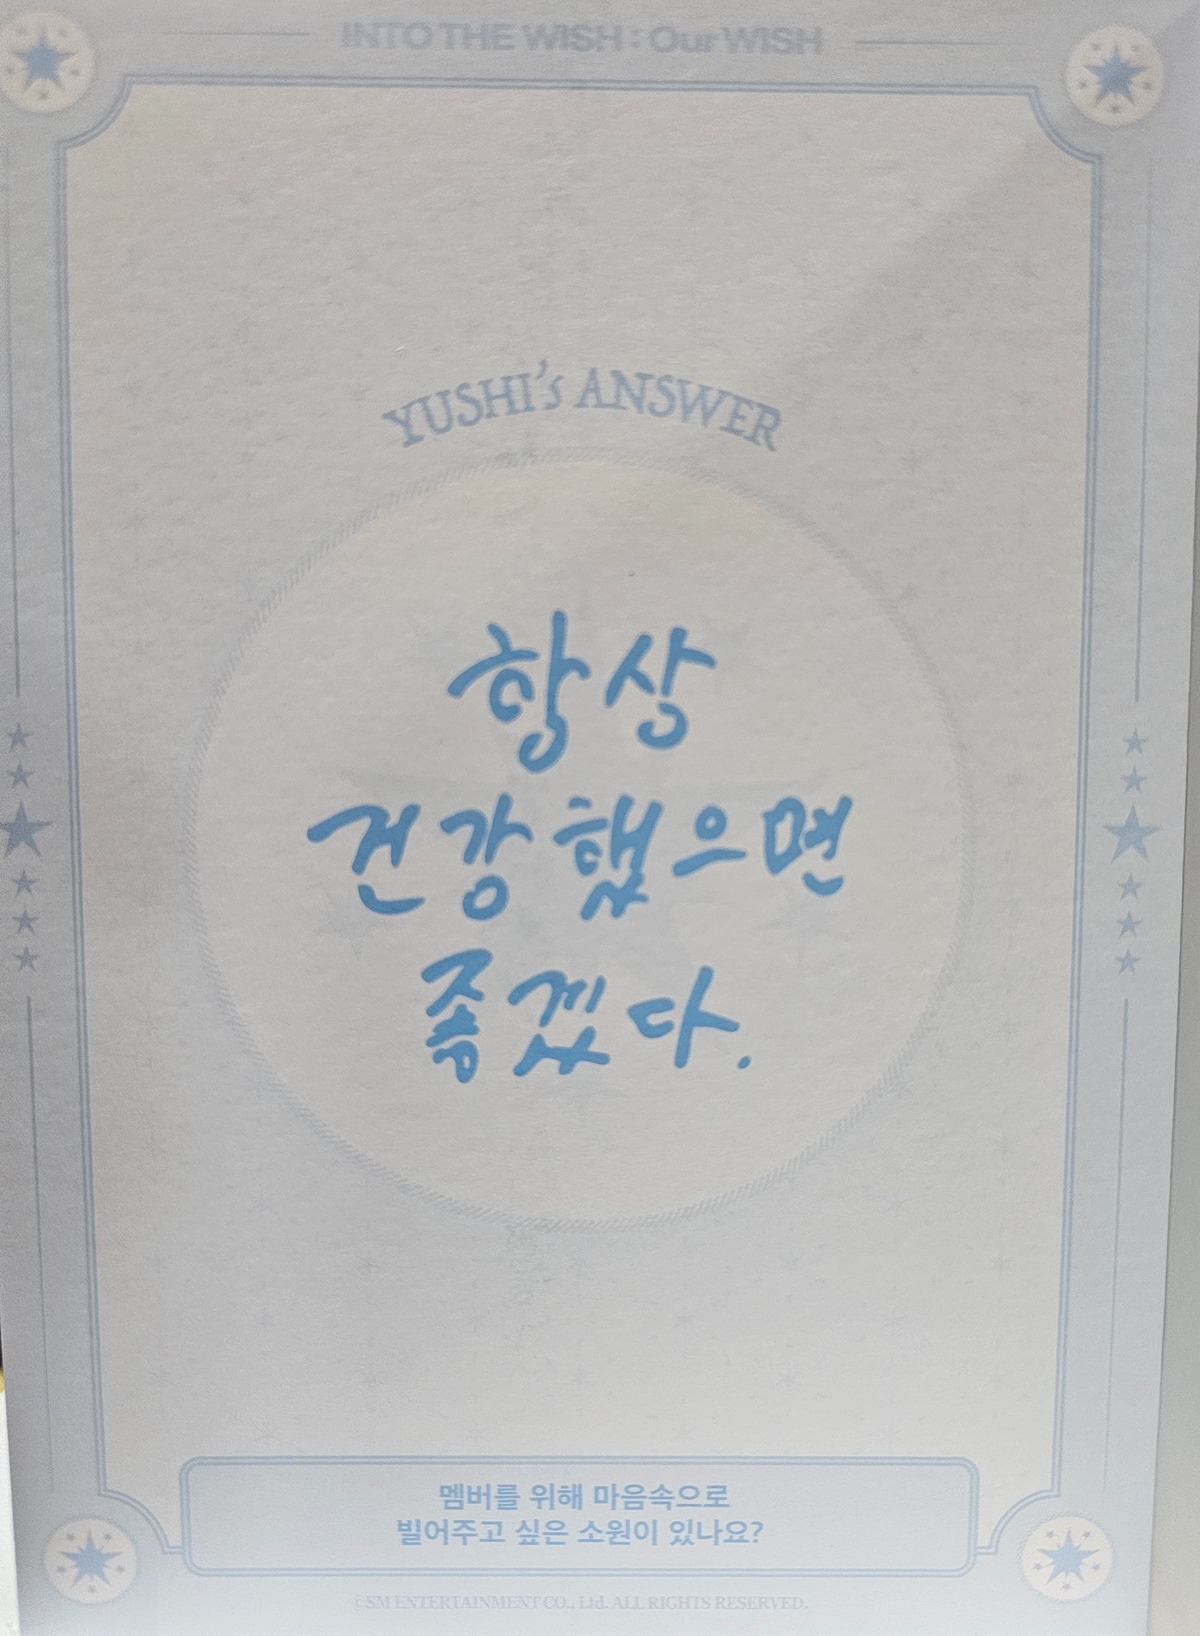 INTO THE WISH : Our WISH
YUSHI's ANSWER
항상
건강했으면
좋겠다.
멤버를 위해 마음속으로
빌어주고 싶은 소원이 있나요?
©SM ENTERTAINMENT CO., Ltd. ALL RIGHTS RESERVED.